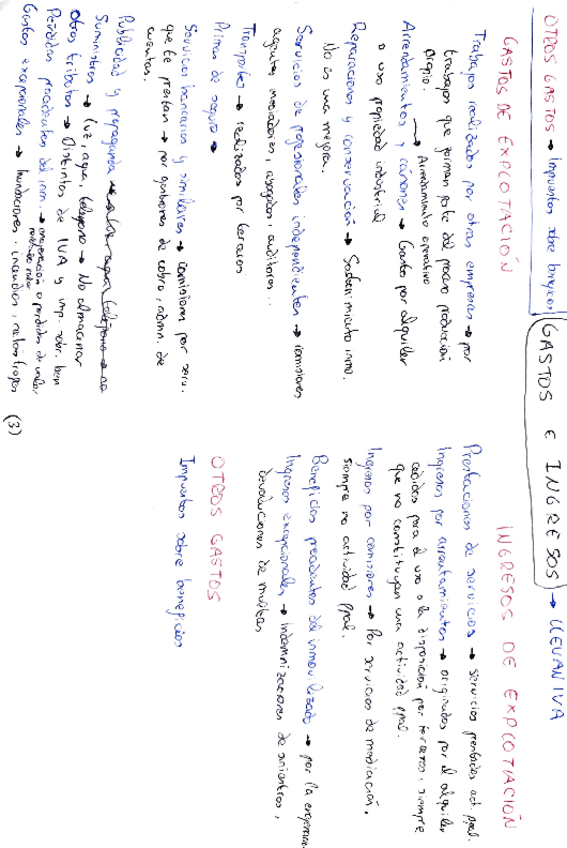 OTROS GASTOS → Impuestos sobre beneficios
GASTOS E INGRESOS → LLEVAN IVA
GASTOS DE EXPLOTACIÓN
Trabajos realizados por otras empresas → por
trabajos que forman parte del proceso producción
propio.
→ Arrendamiento operativo
Arrendamientos y cánones → Gastos por alquiler
o uso propiedad industrial
Reparaciones y conservación → Sostenimiento inmo.
No es una mejora.
Servicios de profesionales independientes → comisiones
agentes mediadores, abogados, auditores...
Transportes → realizados por terceros
Primas de seguro →
Servicios bancarios y similares → Comisiones por serv.
que te prestan → por gestiones de cobro, admn. de
cuentas.
Publicidad y propaganda
Suministros → Luz, agua, teléfono → No almacenar
Otros tributos → Distintos de IVA y imp. sobr. ben
Pérdidas procedentes del inm. → enajenación o perdidas de valor
Gastos excepcionales → Inundaciones, incendios, catástrofes
(3)
INGRESOS DE EXPLOTACIÓN
Prestaciones de servicios → servicios prestados act. ppal.
Ingresos por arrendamientos → originados por el alquiler
cedidos para el uso o la disposición por terceros, siempre
que no constituyen una actividad ppal.
Ingresos por comisiones → Por servicios de mediación,
siempre no actividad ppal.
Beneficios procedentes del inmovilizado → por la enajenación
Ingresos excepcionales → Indemnizaciones de siniestros,
devoluciones de multas
OTROS GASTOS
Impuestos sobre beneficios